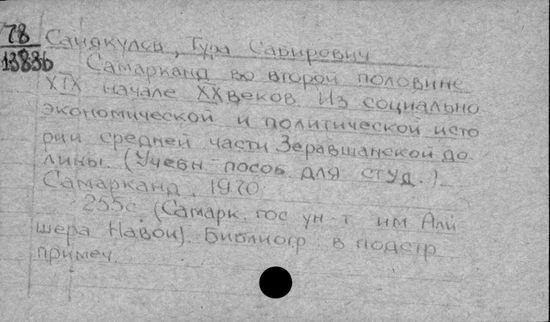 78
13836
Саидкулов, Тура Сабирович
Самарканд во второй половине
XIX начале XX веков. Из социально
экономической и политической исто
рии средней части Зеравшанской до
лины. (Учебн. пособ. для студ.).
Самарканд, 1970.
255с. (Самарк. гос ун-т им Али
шера Навои). Библиогр. в подстр
примеч.